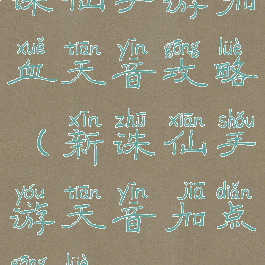 诛仙手游加
xuě tiān yīn gōng lüè
血天音攻略
xīn zhū xiān shǒu
(新诛仙手
yóu tiān yīn jiā diǎn
游天音加点
gōng lüè